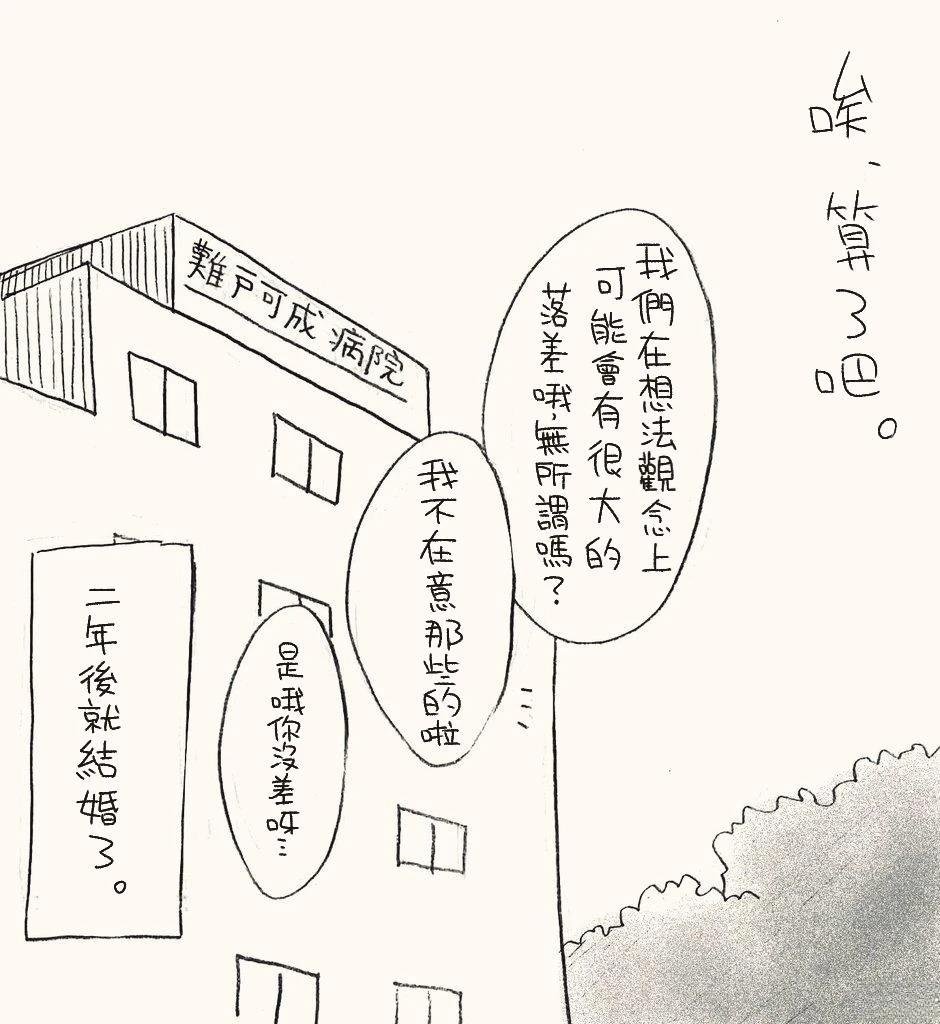 唉、算了吧。
我們在想法觀念上
可能會有很大的
落差哦,無所謂嗎?
難戸可成病院
我不在意那些的啦
是哦你沒差呀…
二年後就結婚了。